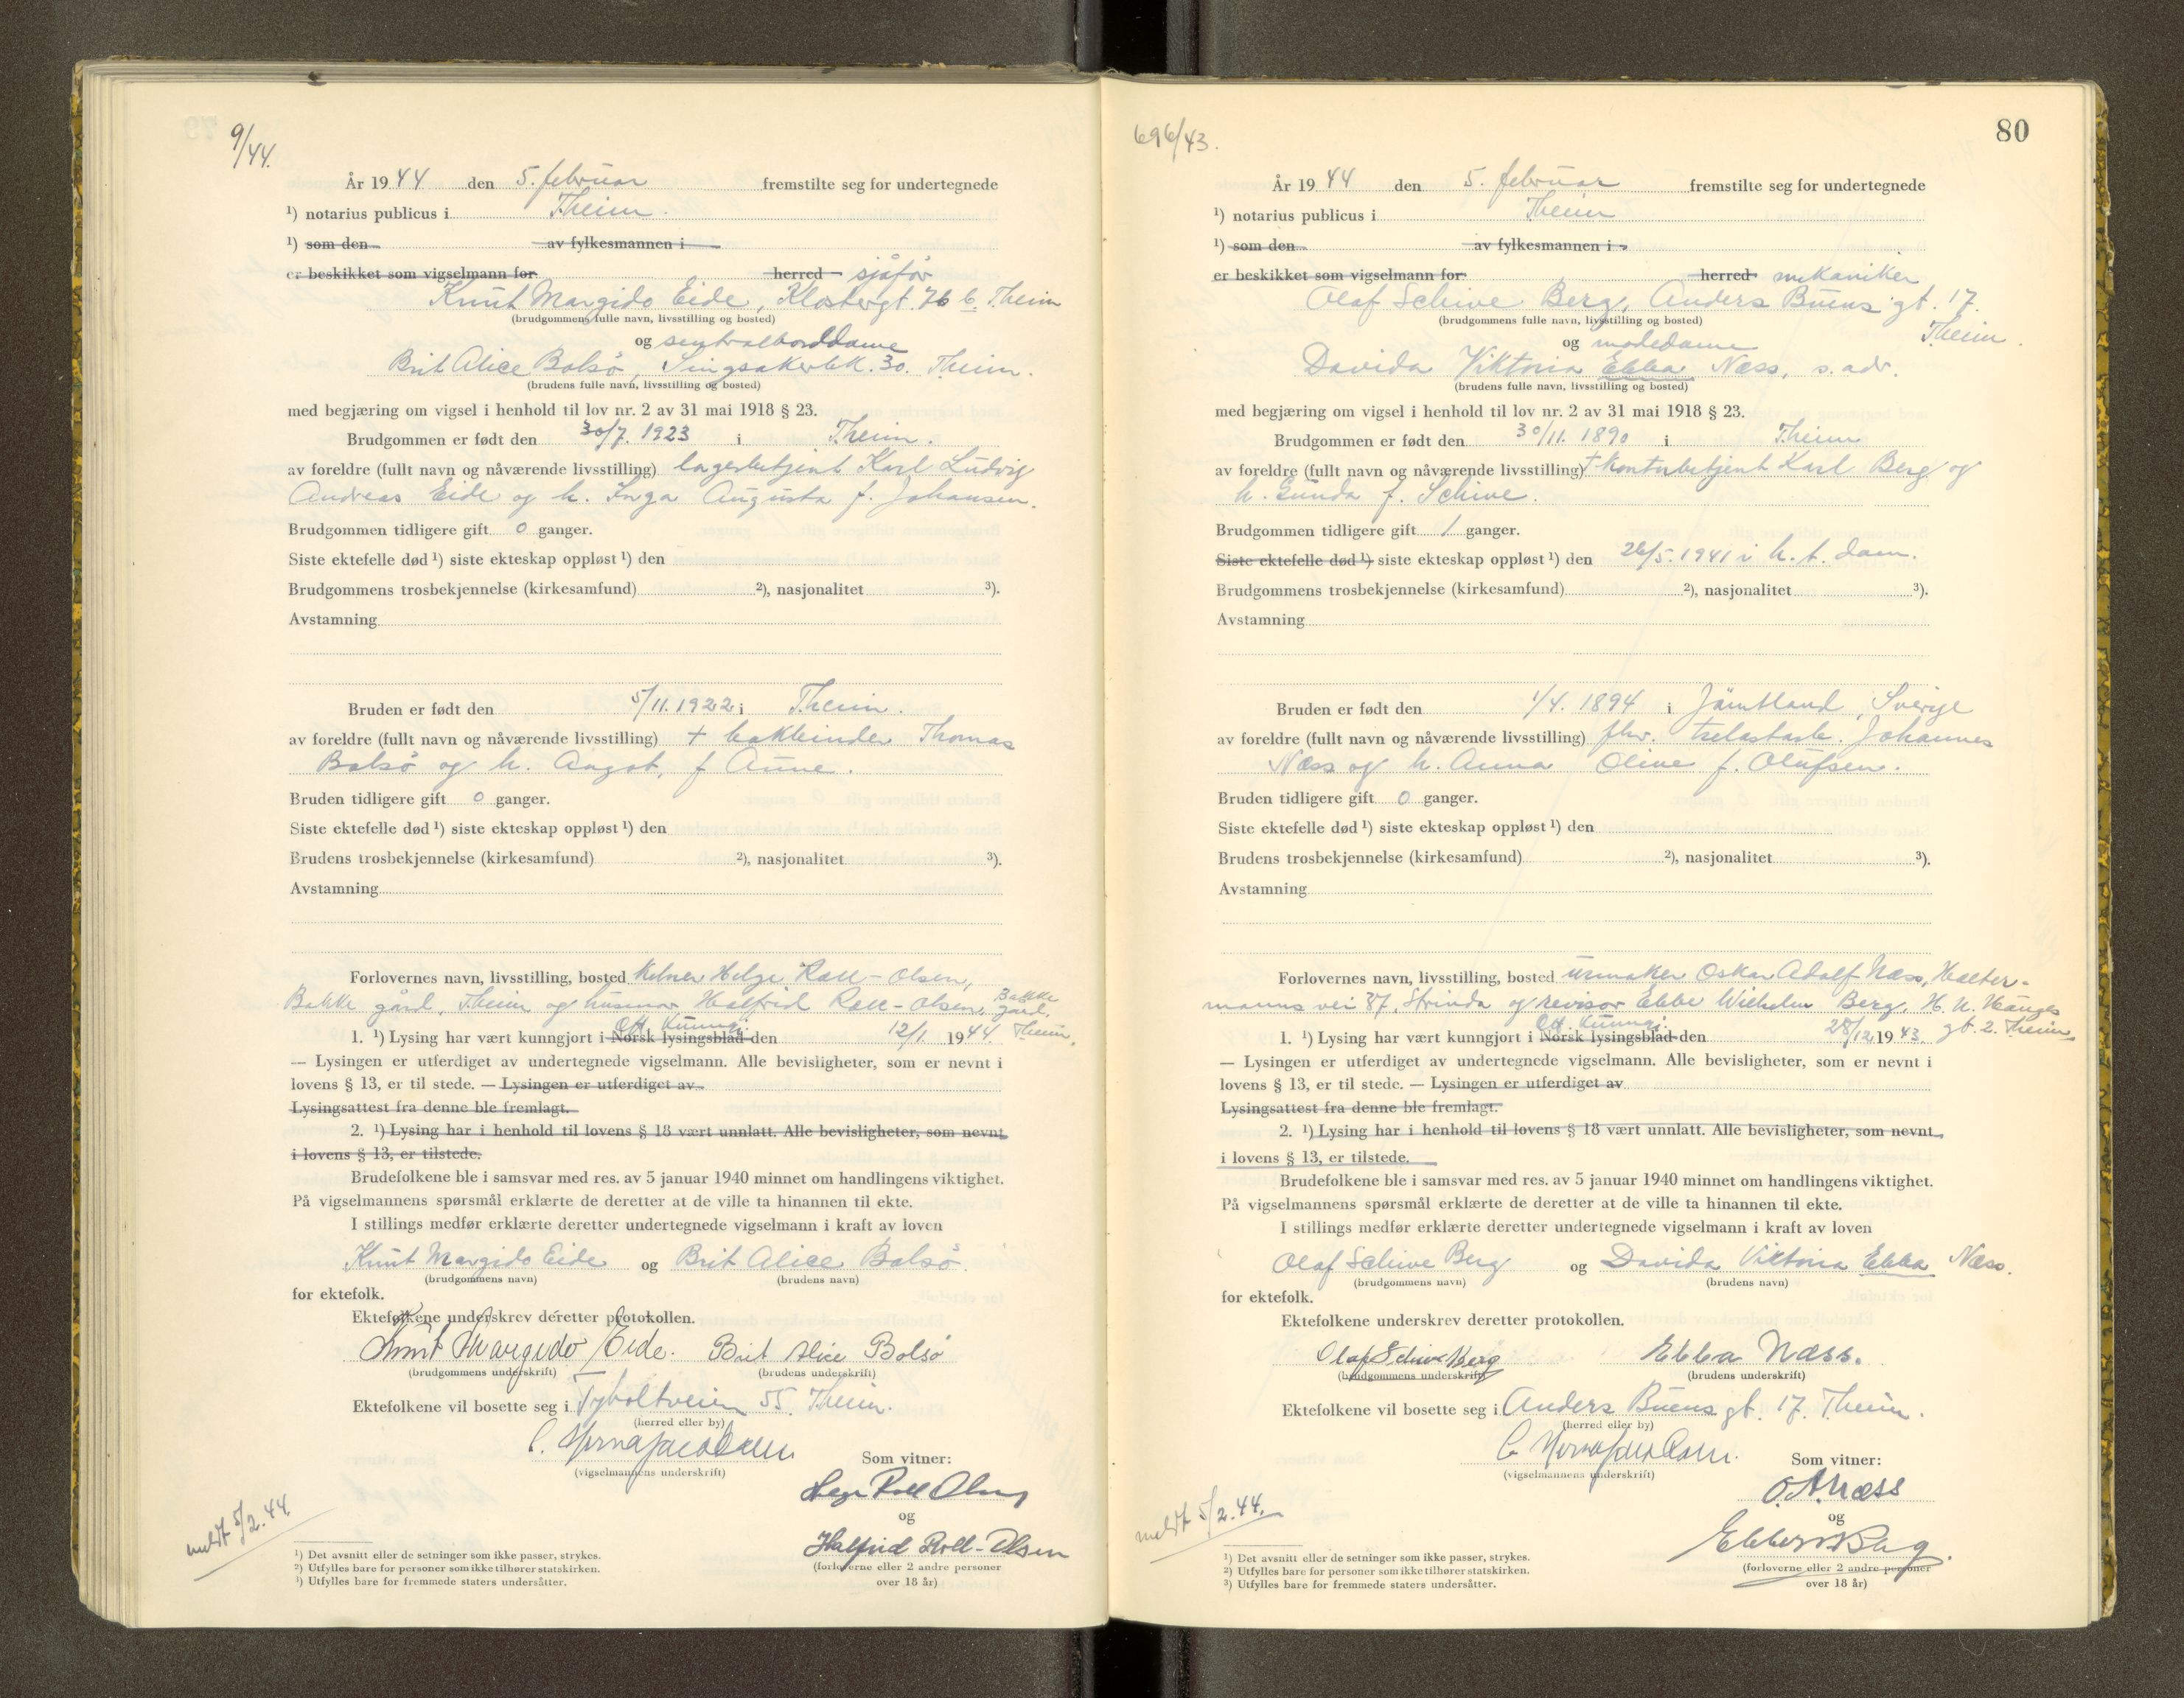 9/44.
År 1944 den 5. februar fremstilte seg for undertegnede
¹) notarius publicus i Theim.
¹) som den av fylkesmannen i
er beskikket som vigselmann for herred sjåfør
Knut Margido Eide, Klostergt. 76 b, Theim
(brudgommens fulle navn, livsstilling og bosted)
og sentralborddame
Brit Alice Bolsø, Singsakerbk. 30. Theim.
(brudens fulle navn, livsstilling og bosted)
med begjæring om vigsel i henhold til lov nr. 2 av 31 mai 1918 § 23.
Brudgommen er født den 30/7. 1923 i Theim.
av foreldre (fullt navn og nåværende livsstilling) lagerbetjent Karl Ludvig
Andreas Eide og h. Inga Augusta f. Johansen.
Brudgommen tidligere gift 0 ganger.
Siste ektefelle død ¹) siste ekteskap oppløst ¹) den
Brudgommens trosbekjennelse (kirkesamfund) ²), nasjonalitet ³).
Avstamning
Bruden er født den 5/11. 1922 i Theim.
av foreldre (fullt navn og nåværende livsstilling) + bokbinder Thomas
Bolsø og h. Angot, f Aune.
Bruden tidligere gift 0 ganger.
Siste ektefelle død ¹) siste ekteskap oppløst ¹) den
Brudens trosbekjennelse (kirkesamfund) ²), nasjonalitet ³).
Avstamning
Forlovernes navn, livsstilling, bosted Kelner Helge Roll-Olsen,
Bakke gård, Theim og husmor Halfrid Roll-Olsen, Bakke gård, Theim.
Off. kunngj.
1. ¹) Lysing har vært kunngjort i Norsk lysingsblad den 12/1. 1944.
— Lysingen er utferdiget av undertegnede vigselmann. Alle bevisligheter, som er nevnt i
lovens § 13, er til stede. — Lysingen er utferdiget av
Lysingsattest fra denne ble fremlagt.
2. ¹) Lysing har i henhold til lovens § 18 vært unnlatt. Alle bevisligheter, som nevnt
i lovens § 13, er tilstede.
Brudefolkene ble i samsvar med res. av 5 januar 1940 minnet om handlingens viktighet.
På vigselmannens spørsmål erklærte de deretter at de ville ta hinannen til ekte.
I stillings medfør erklærte deretter undertegnede vigselmann i kraft av loven
Knut Margido Eide og Brit Alice Bolsø
(brudgommens navn) (brudens navn)
for ektefolk.
Ektefolkene underskrev deretter protokollen.
Knut Margido Eide. Brit Alice Bolsø
(brudgommens underskrift) (brudens underskrift)
Ektefolkene vil bosette seg i Tyholtveien 55. Theim.
(herred eller by)
(vigselmannens underskrift)
Som vitner:
Helge Roll Olsen
og
Halfrid Roll-Olsen
(forloverne eller 2 andre personer
over 18 år)
meldt 5/2. 44.
¹) Det avsnitt eller de setninger som ikke passer, strykes.
²) Utfylles bare for personer som ikke tilhører statskirken.
³) Utfylles bare for fremmede staters undersåtter.
696/43.
80
År 1944 den 5. februar fremstilte seg for undertegnede
¹) notarius publicus i Theim
¹) som den av fylkesmannen i
er beskikket som vigselmann for herred mekaniker
Olaf Schive Berg, Anders Buens gt. 17.
(brudgommens fulle navn, livsstilling og bosted) Theim.
og motedame
Davida Viktoria Ebba Næss, s. adr.
(brudens fulle navn, livsstilling og bosted)
med begjæring om vigsel i henhold til lov nr. 2 av 31 mai 1918 § 23.
Brudgommen er født den 30/11. 1890 i Theim
av foreldre (fullt navn og nåværende livsstilling) + kontorbetjent Karl Berg og
h. Gunda f. Schive.
Brudgommen tidligere gift 1 ganger.
Siste ektefelle død ¹) siste ekteskap oppløst ¹) den 26/5. 1941 i h. t. dom.
Brudgommens trosbekjennelse (kirkesamfund) ²), nasjonalitet ³).
Avstamning
Bruden er født den 1/4. 1894 i Jämtland, Sverige
av foreldre (fullt navn og nåværende livsstilling) fhv. Johannes
Næss og h. Anna Oline f. Olufsen.
Bruden tidligere gift 0 ganger.
Siste ektefelle død ¹) siste ekteskap oppløst ¹) den
Brudens trosbekjennelse (kirkesamfund) ²), nasjonalitet ³).
Avstamning
Forlovernes navn, livsstilling, bosted urmaker Oskar Adolf Næss, Halter-
manns vei 37, Strinda og revisor Ebbe Wilhelm Berg, gt. 2. Theim
Off. kunngj.
1. ¹) Lysing har vært kunngjort i Norsk lysingsblad den 28/12 1943.
— Lysingen er utferdiget av undertegnede vigselmann. Alle bevisligheter, som er nevnt i
lovens § 13, er til stede. — Lysingen er utferdiget av
Lysingsattest fra denne ble fremlagt.
2. ¹) Lysing har i henhold til lovens § 18 vært unnlatt. Alle bevisligheter, som nevnt
i lovens § 13, er tilstede.
Brudefolkene ble i samsvar med res. av 5 januar 1940 minnet om handlingens viktighet.
På vigselmannens spørsmål erklærte de deretter at de ville ta hinannen til ekte.
I stillings medfør erklærte deretter undertegnede vigselmann i kraft av loven
Olaf Schive Berg og Davida Viktoria Ebba Næss.
(brudgommens navn) (brudens navn)
for ektefolk.
Ektefolkene underskrev deretter protokollen.
Olaf Schive Berg Ebba Næss.
(brudgommens underskrift) (brudens underskrift)
Ektefolkene vil bosette seg i Anders Buens gt. 17. Theim.
(herred eller by)
(vigselmannens underskrift)
Som vitner:
O. A. Næss
og
Ebbe W Berg.
(forloverne eller 2 andre personer
over 18 år)
meldt 5/2. 44.
¹) Det avsnitt eller de setninger som ikke passer, strykes.
²) Utfylles bare for personer som ikke tilhører statskirken.
³) Utfylles bare for fremmede staters undersåtter.